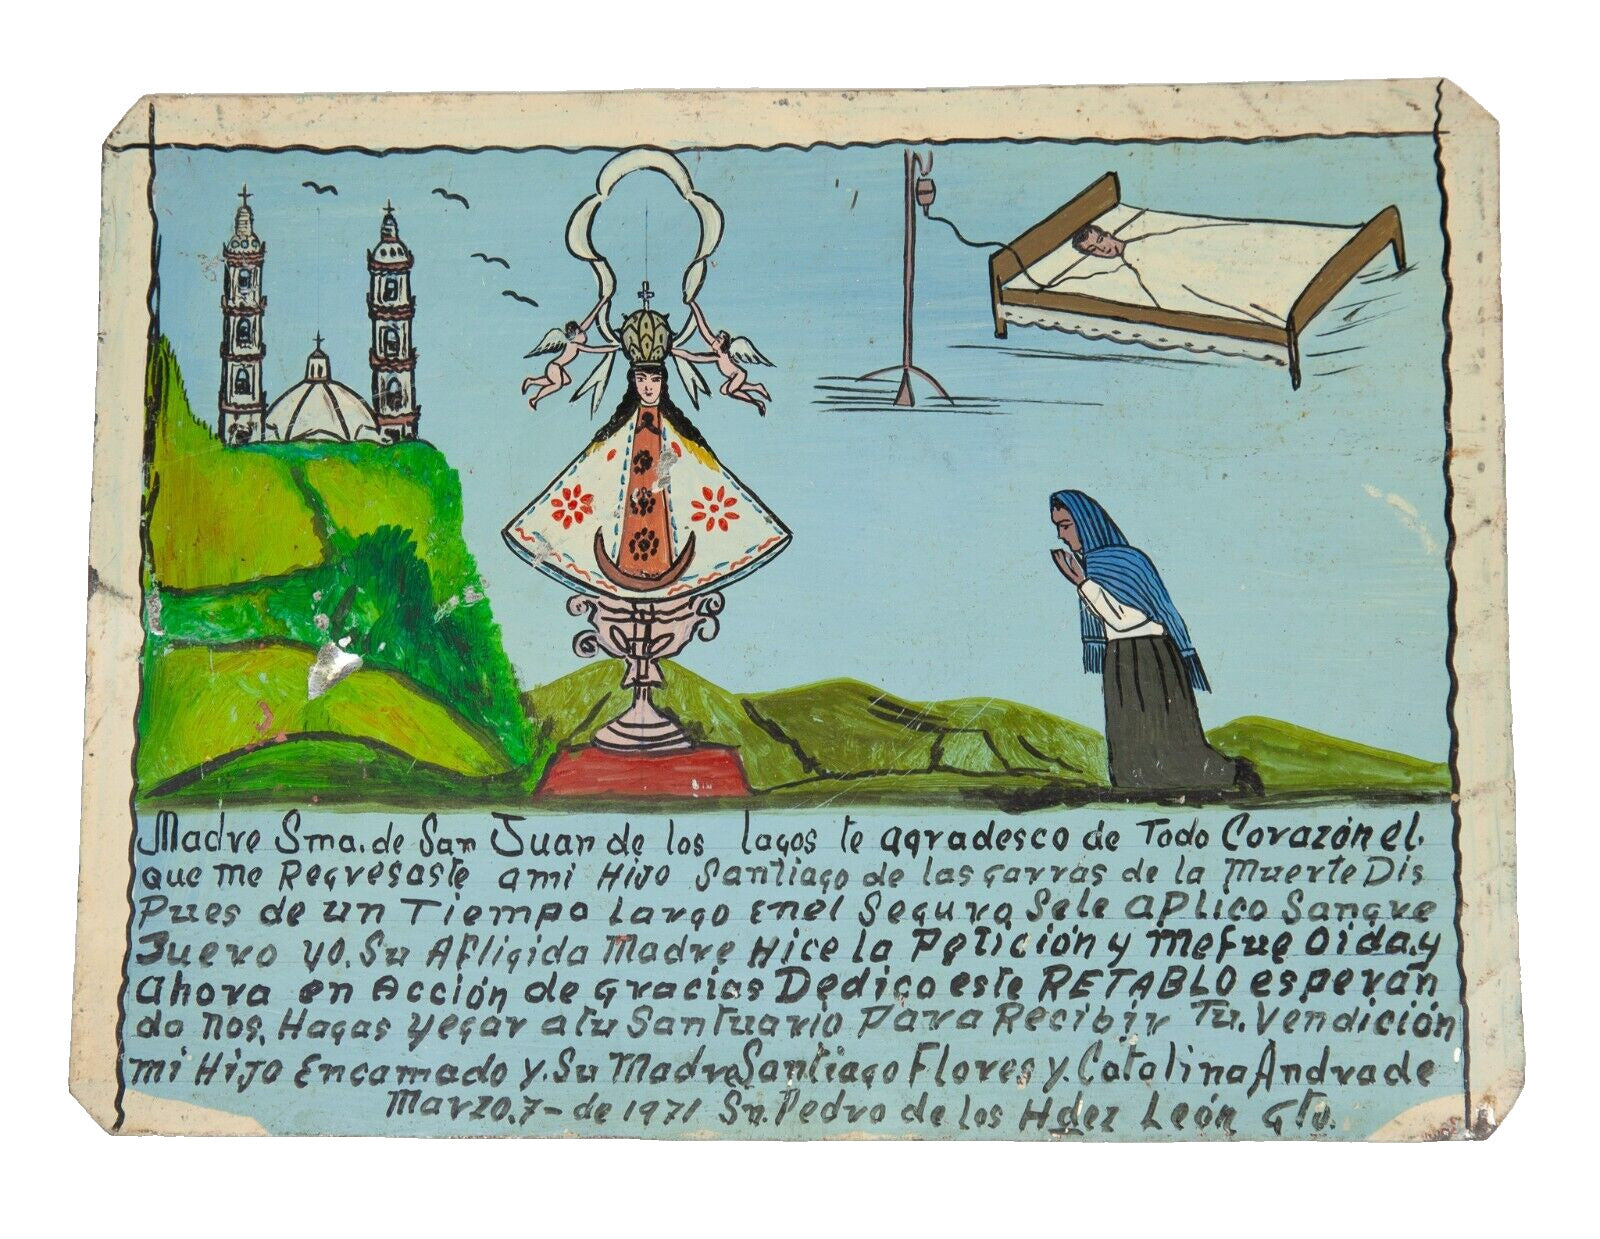 Madre Sma. de San Juan de los lagos te agradesco de Todo Corazón el.
que me Regresaste ami Hijo Santiago de las garras de la Muerte Dis
Pues de un Tiempo Largo Enel Seguro Sele aplico Sangre
Suero yo. Su Afligida Madre Hice la Petición y Mefue Oida. y
Ahora en Acción de gracias Dedico este RETABLO esperan
do nos. Hagas yegar atu Santuario Para Recibir Tu. Vendición
mi Hijo Encamado y. Su Madre Santiago Flores y. Catalina Andrade
Marzo. 7- de 1971 Sn. Pedro de los Hdez León Gto.